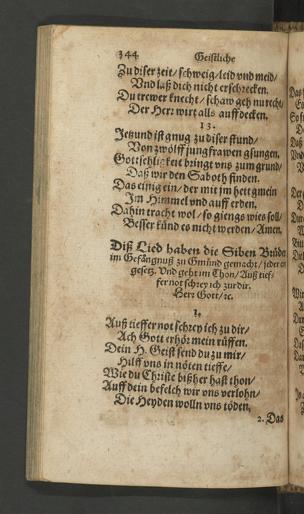 344 Geistliche
Zu diser zeit/ schweig/ leid vnd meid/
Vnd laß dich nicht erschrecken.
Du trewer knecht/ schaw geh nu recht/
Der Herr wirt alls auffdecken.
13.
Jetzund ist gnug zu diser stund/
Von zwölff jungfrawen gsungen,
Gottsehligkeit bringt vns zum grund/
Daß wir den Saboth finden.
Das einig ein/ der mit jm heltgmein
Im Himmel vnd auff erden.
Dahin tracht wol/ so giengs wies soll/
Besser künd es nicht werden/ Amen.
Diß Lied haben die Siben Brüder
im Gefängnuß zu Gmünd gemacht/ jeder ein
gesetz. Vnd geht im Thon/ Auß tief-
fer not schrey ich zu dir.
Herr Gott/ ꝛc.
1.
Auß tieffer not schrey ich zu dir/
Ach Gott erhör mein rüffen.
Dein H. Geist send du zu mir/
Hilff vns in nöten tieffe/
Wie du Christe bißher hast thon/
Auff dein befelch wir vns verlohn/
Die Heyden wolln vns töden,
2. Das